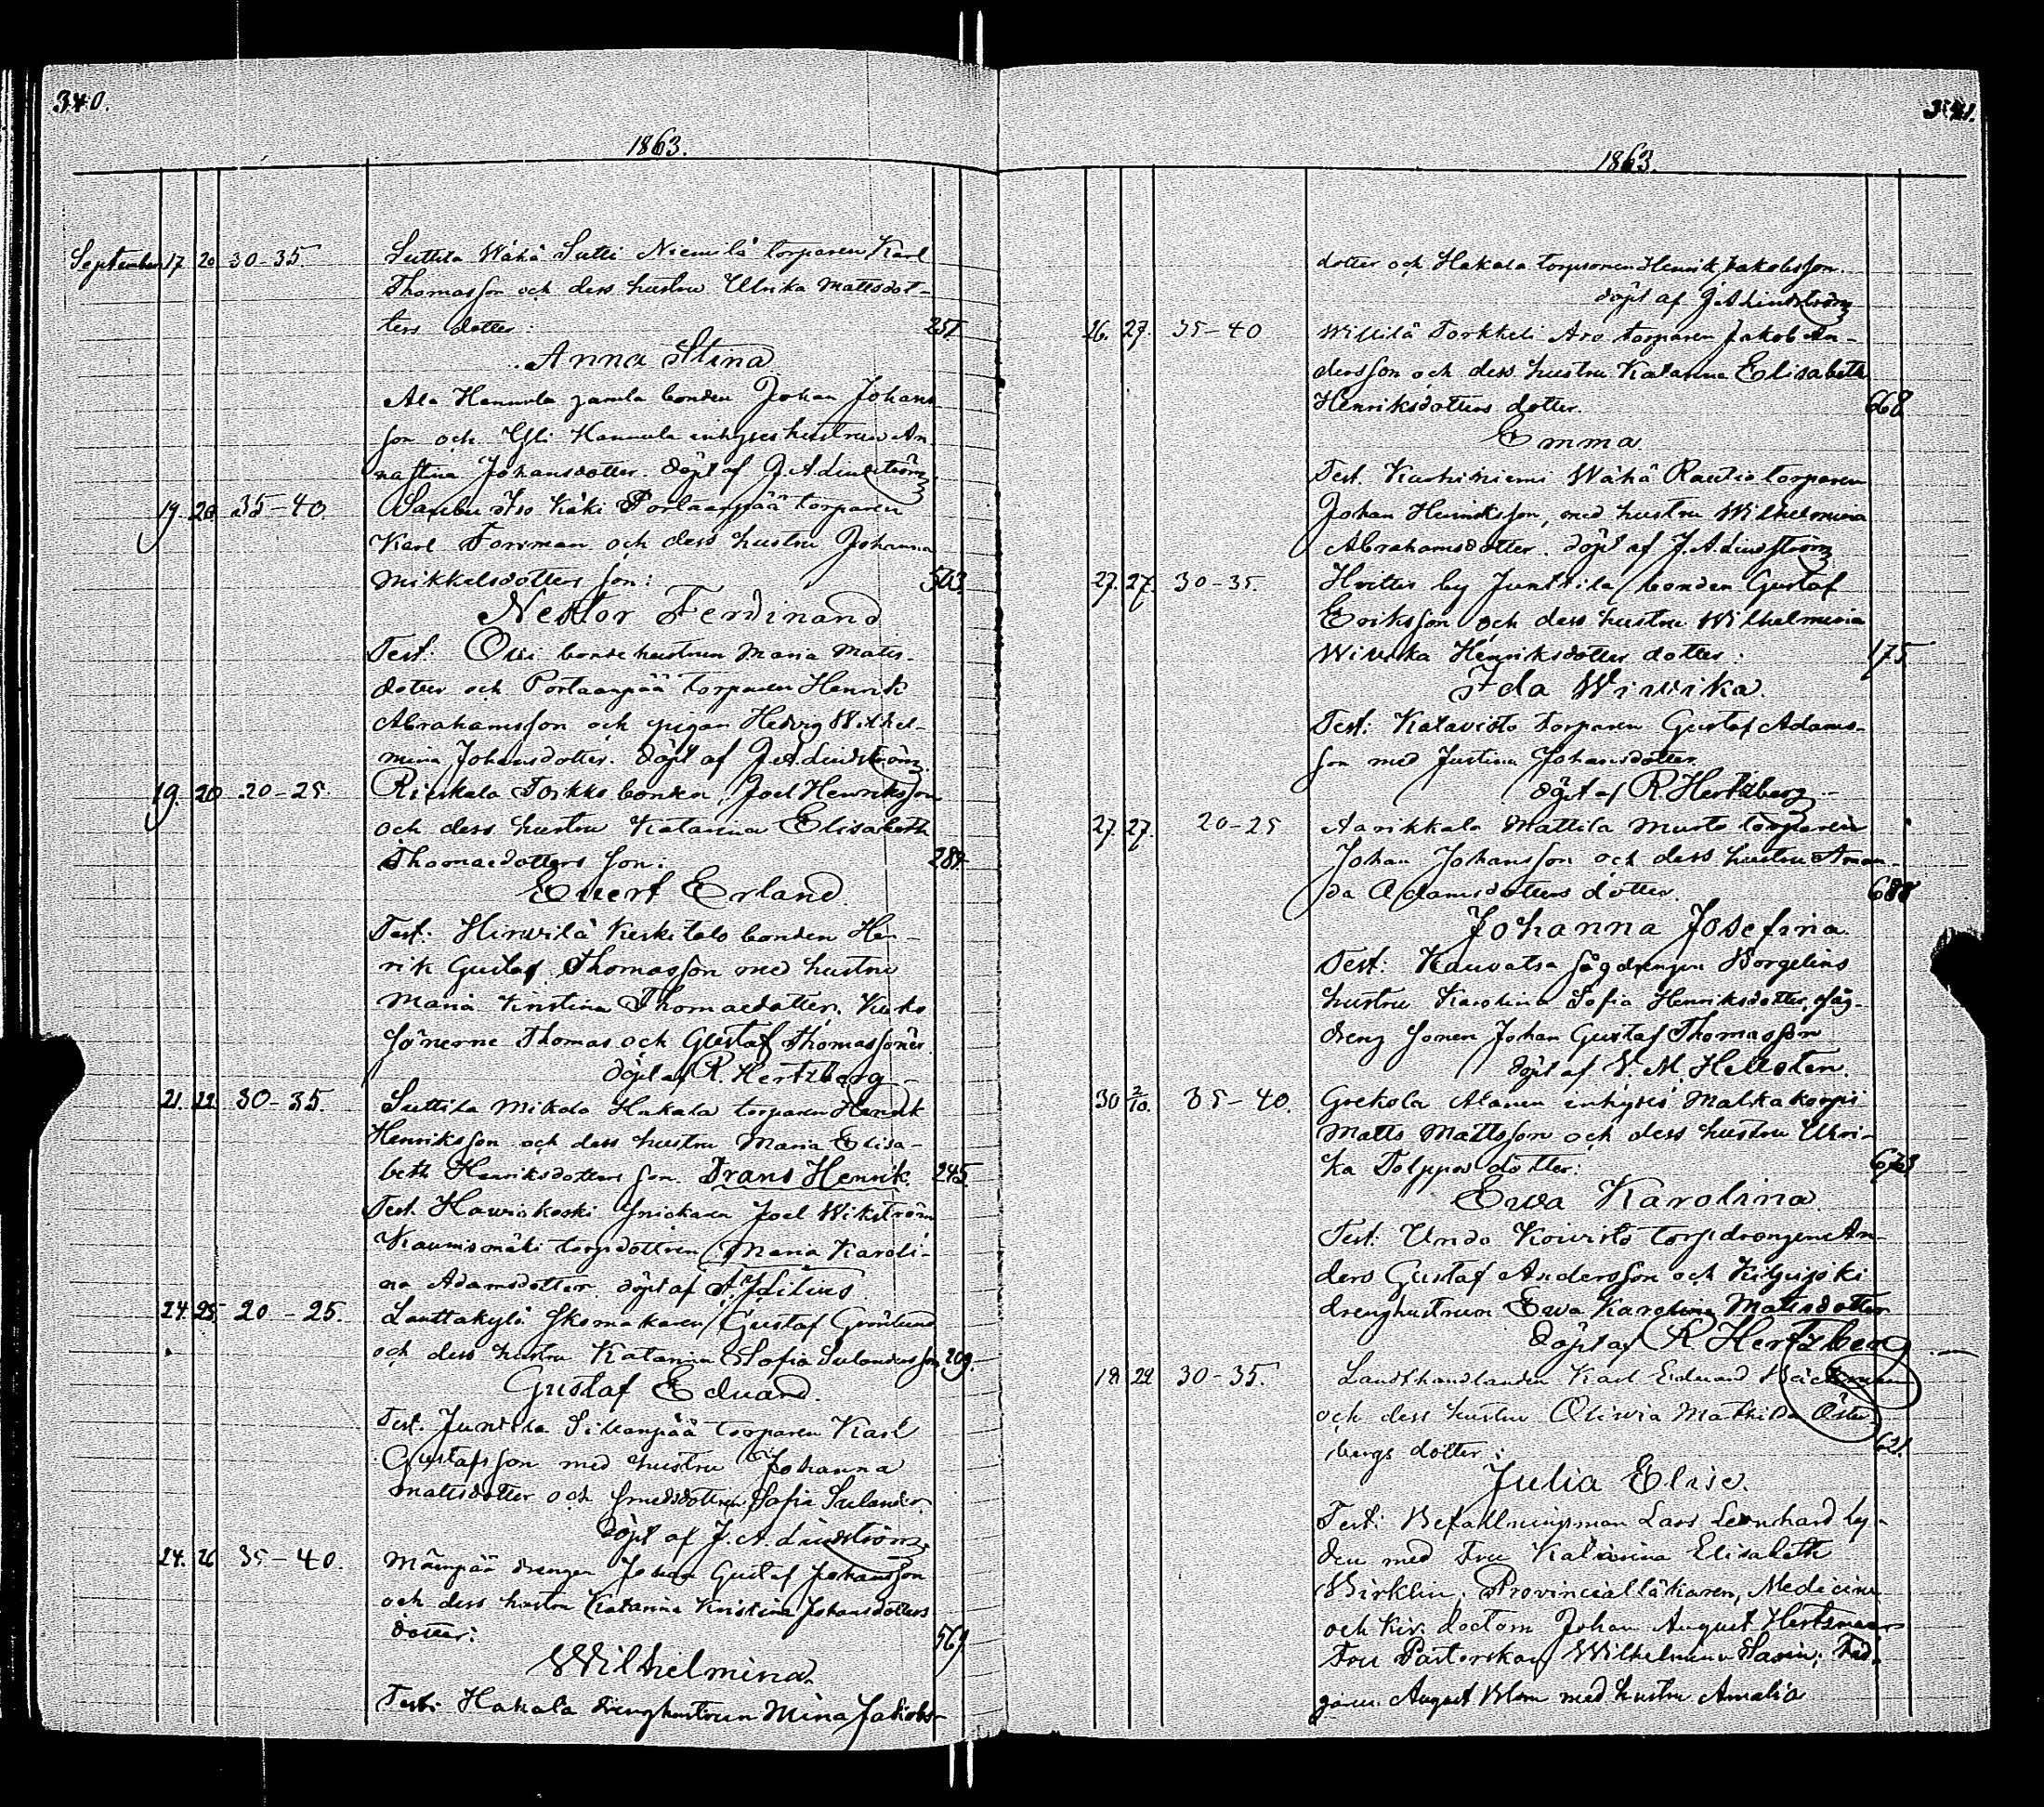 340.
1863.
September 17 20 30-35. Suttila Wähä Sutti Niemilä torparen Karl
Thomasson och dess hustru Ulrika Mattsdot-
ters dotter: 251
Anna Stina
Ala Hannula gamla bonden Johan Johans
son och Yli Hannula inhyses hustrun An
na Stina Johansdotter. döpt af J. A. Lindström
19 20 35-40. Iso Käki Portaanpää torparen
Karl Forsman och dess hustru Johanna
Mikkelsdotters son: 563
Nestor Ferdinand
Test: Ovi bondehustrun Maria Matts-
dotter och Portaanpää torparen Henrik
Abrahamsson och pigan Hedvig Wilhel-
mina Johansdotter. döpt af J. A. Lindström.
19. 20 20-25. Rieskala Torkko bonden, Joel Henriksson
och dess hustru Katarina Elisabeth
Thomasdotters son: 289
Evert Erland.
Test: Hirvilä Keskitalo bonden Hen-
rik Gustaf Thomasson med hustru
Maria Kristina Thomasdotter,
Sönerne Thomas och Gustaf Thomassöner
döpt af R. Hertzberg
21. 22 30-35. Suttila Mikola Hakala torparen Henrik
Henriksson och dess hustru Maria Elisa-
beth Henriksdotters son. Frans Henrik. 245
Test. Haviokoski Snickaren Joel Wikström
Kaunismäki torpdottren Maria Karoli-
na Adamsdotter. döpt af A. Idilius.
24. 25 20-25. Lauttakylä Skomakaren Gustaf Grönlund
och dess hustru Katarina Sofia Sulanders son 209.
Gustaf Edvard.
Test. Junnila Sillanpää torparen Karl
Gustafsson med hustru Johanna
Mattsdotter och smedsdottren Sofia Sulander.
döpt af J. A. Lindström
24. 26 35-40. Mämpää drengen Johan Gustaf Johansson
och dess hustru Katarina Kristina Johansdotters
dotter: 569
Wilhelmina
Test: Hakala drenghustrun Mina Jakobs-
341.
1863.
dotter och Hakala torparen Henrik Jakobsson.
döpt af J. A. Lindström
26. 27. 35-40 Willilä Torkkeli Aro torparen Jakob An-
dersson och dess hustru Katarina Elisabeth
Henriksdotters dotter. 668
Emma.
Test. Karhiniemi Wähä Rautio torparen
Johan Henriksson, med hustru Wilhelmina
Abrahamsdotter. döpt af J. A. Lindström
27. 27. 30-35. Hvittis by Junttila bonden Gustaf
Eriksson och dess hustru Wilhelmina
Wivika Henriksdotters dotter: 175
Ida Wivika.
Test: Katavisto torparen Gustaf Adams-
son med Justina Johansdotter
döpt af R. Hertzberg
27. 27. 20-25 Aarikkala Mattila Musto torparen
Johan Johansson och dess hustru Aman-
da Adamsdotters dotter. 688
Johanna Josefina.
Test: Kauvatsa Sågdrengen Borgelins
hustru Karolina Sofia Henriksdotter, Såg-
dreng Sonen Johan Gustaf Thomasson
döpt af V. M. Hellsten.
30 2/10. 35-40. Grekola Alanen inhyses Malkakorpi
Matts Mattsson och dess hustru Ulri-
ka Tolppos dotter: 673
Ewa Karolina.
Test: Undo Koivisto torpdrengen An-
ders Gustaf Andersson och Kilpijoki
drenghustrun Ewa Karolina Mattsdotter
döpt af R Hertzberg
18 22 30-35. Landthandlanden Karl Eduard Bäckman
och dess hustru Olivia Mathilda Öster
bergs dotter: 621
Julia Elise.
Test: Befallningsman Lars Leonhard Ly-
den med Fru Katarina Elisabeth
Birklin; Provincialläkaren, Medicine
och Kir. doctorn Johan August Hertzman
Fru Pastorskan Wilhelmina; Fäl-
garen August Blom med hustru Amalia